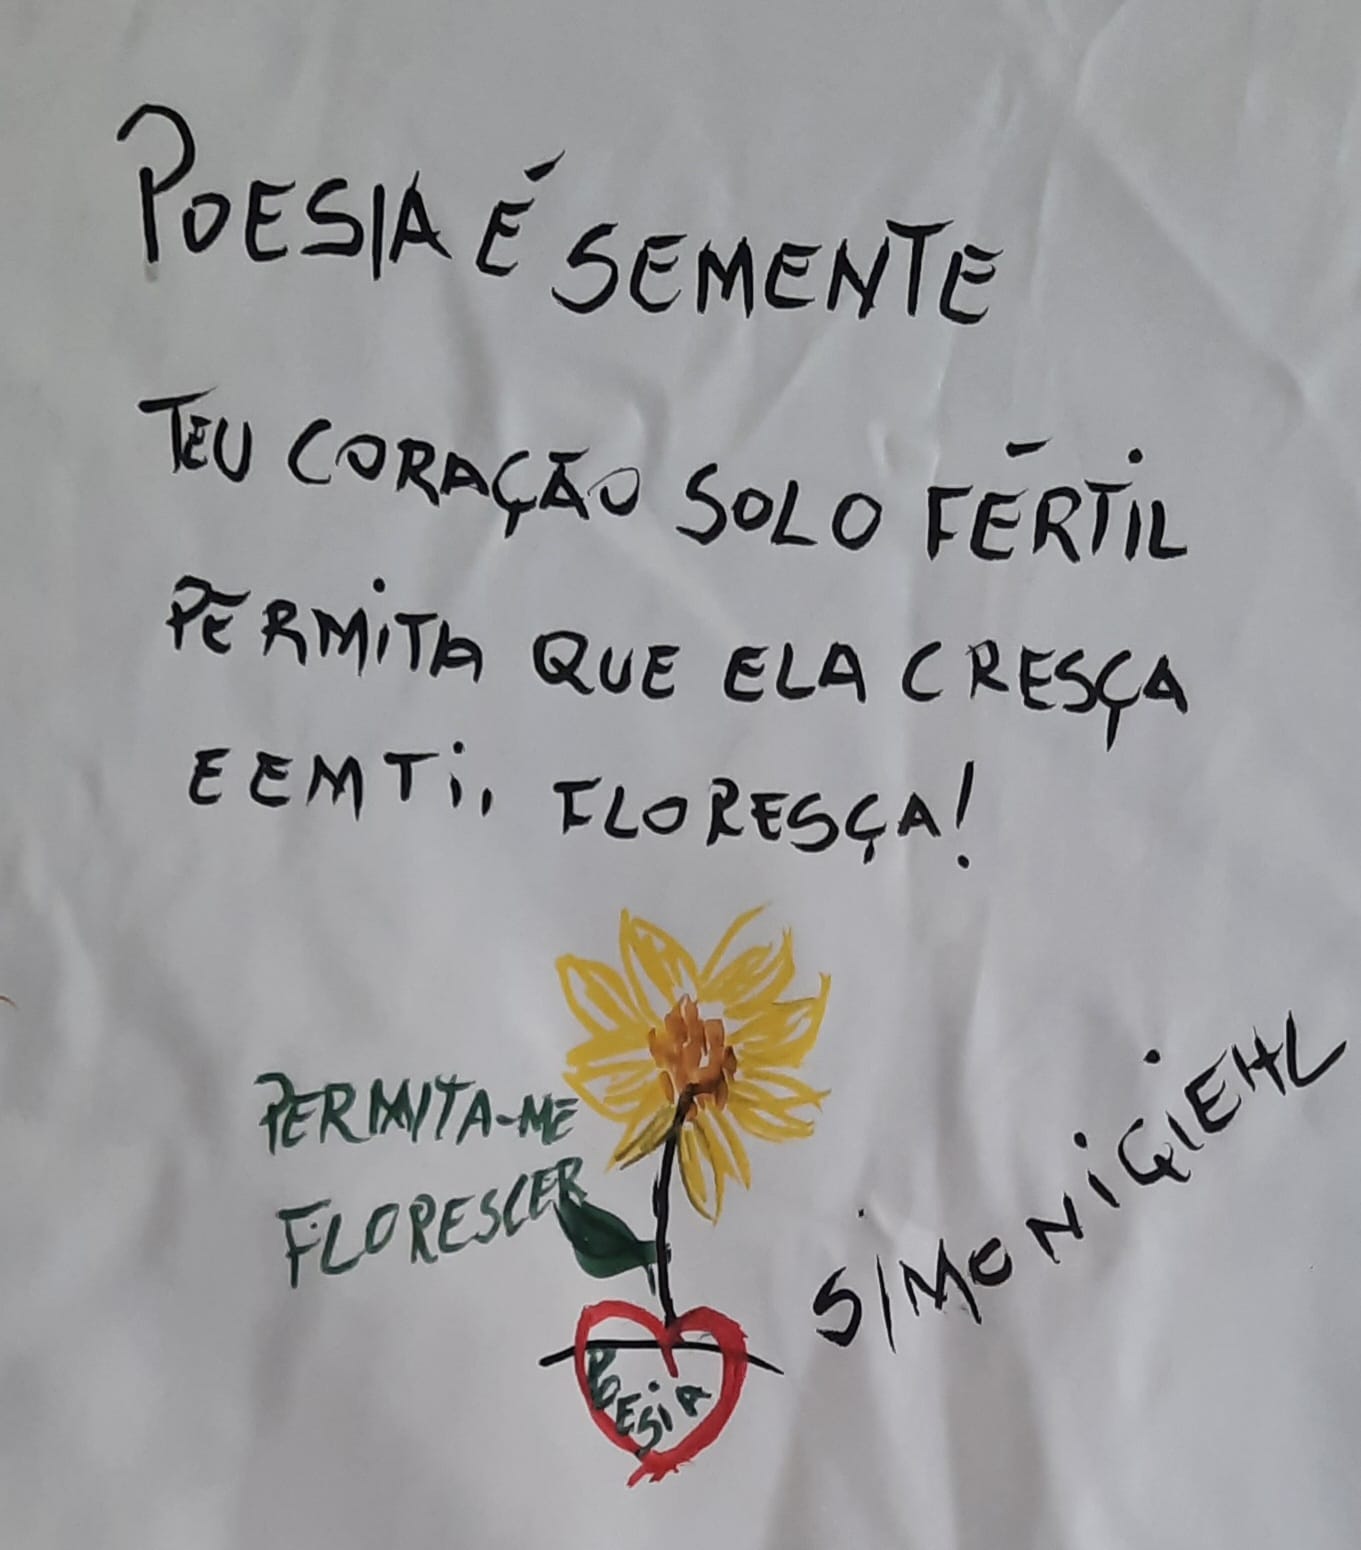 POESIA É SEMENTE
TEU CORAÇÃO SOLO FÉRTIL
PERMITA QUE ELA CRESÇA
E EM TI, FLORESÇA!
PERMITA-ME
FLORESCER
SIMONI GIEHL
POESIA